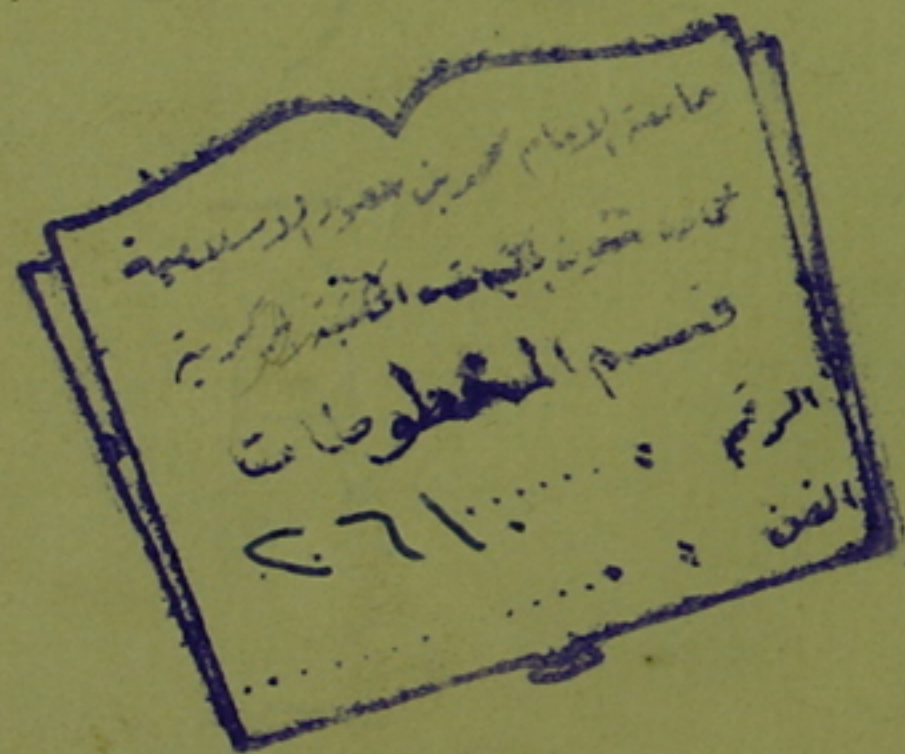 جامعة الإمام محمد بن سعود الإسلامية
عمادة شؤون المكتبات
قسم المخطوطات
الرقم : ٢٦١٠
الفن :